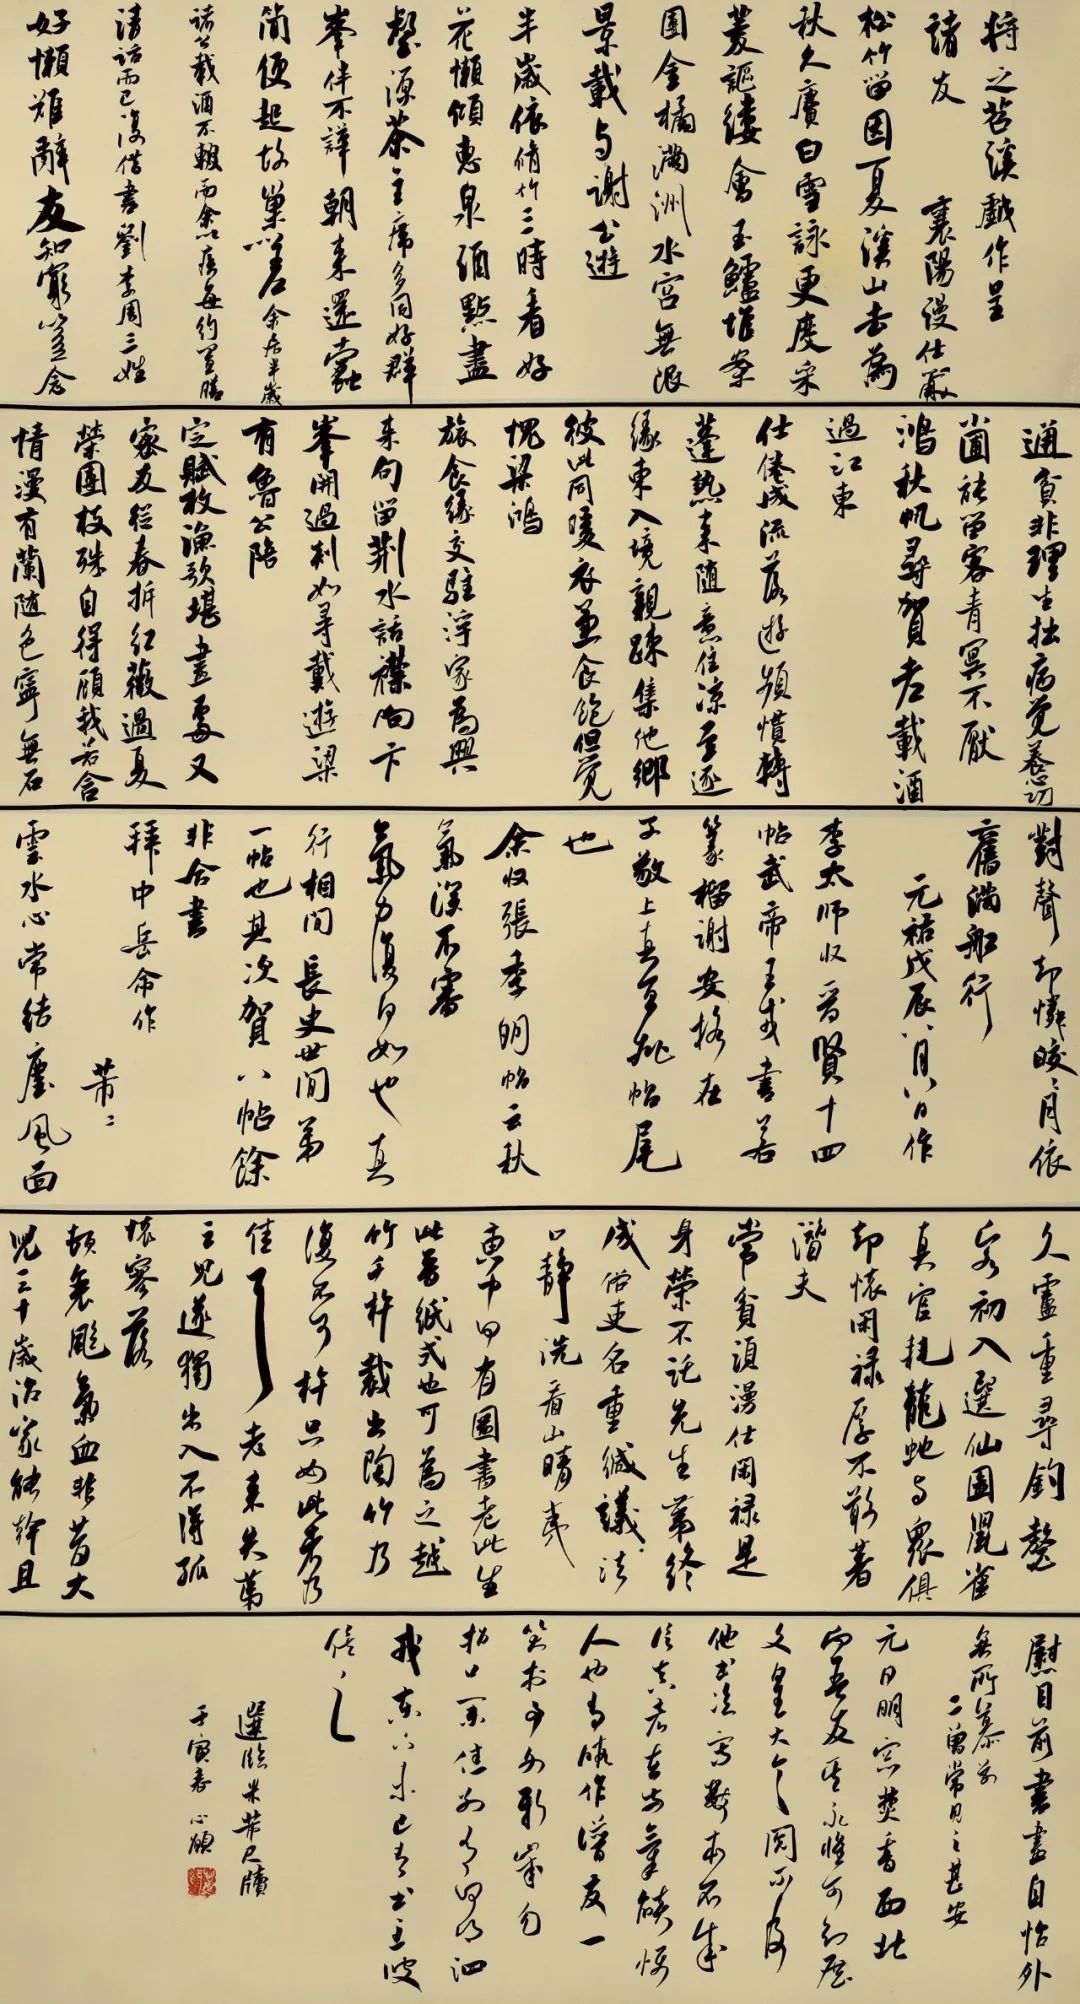 將之苕溪戲作呈
諸友　襄陽漫仕黻
松竹留因夏溪山去為
秋久賡白雪詠更度采
菱謳縷會玉鱸堆案
團金橘滿洲水宮無限
景載與謝公遊
半歲依脩竹三時看好
花懶傾惠泉酒點盡
壑源茶主席多同好群
峯伴不譁朝來還蠹
簡便起故巢嗟余居半歲
諸公載酒不輟而余以疾每約置膳
清話而已復借書劉李周三姓
好懶難辭友知窮豈念
通貧非理生拙病覺養心功
小圃能留客青冥不厭
鴻秋帆尋賀老載酒
過江東
仕倦成流落遊頻慣轉
蓬熱來隨意住涼至逐
緣東入境親疎集他鄉
彼此同暖衣並食飽但覺
愧梁鴻
旅食緣交駐浮家為興
來句留荆水話襟向卞
峯開過剡如尋戴遊梁
有魯公陪
定賦敢漁歌堪畫處又
密友從春拆紅薇過夏
榮團枝殊自得顧我若含
情漫有蘭隨色寧無石
對聲却憐皎月依
舊滿船行
元祐戊辰八月八日作
李太師收晉賢十四
帖武帝王戎書若
篆籀謝安格在
子敬上真可批帖尾
也
余收張季明帖云秋
氣深不審
氣力復何如也真
行相間長史世間第
一帖也其次賀八帖餘
非合書
拜中岳命作
芾
雲水心常結塵風面
久盧重尋釣鼇
客初入選仙圖鼠雀
真官耗龍蛇與眾俱
却懷閑祿厚不敢著
潛夫
常貧須漫仕閑祿是
身榮不託先生第終
成俗吏名重緘議法
口靜洗看山晴夷
惠中何有圖書老此生
此晉紙式也可為之越
竹千杵裁出陶竹乃
復不可杵只如此者乃
佳耳老來失第
三兒遂獨出入不得孤
懷寥落
頓衰颰氣血非昔大
兒三十歲治家能幹且
慰目前書畫自怡外
無所慕芾
二曾常見之甚安
元日明窗焚香西北
向吾友其永懷可知展
文皇大令閱不及
他書臨寫數本不成
信真者在前氣焰慑
人也有暇作譜友一
笑於事外新歲勿
招口業佳別有何得泗
我東下未已有書至彼
倍
選臨米芾尺牘
壬寅春心願